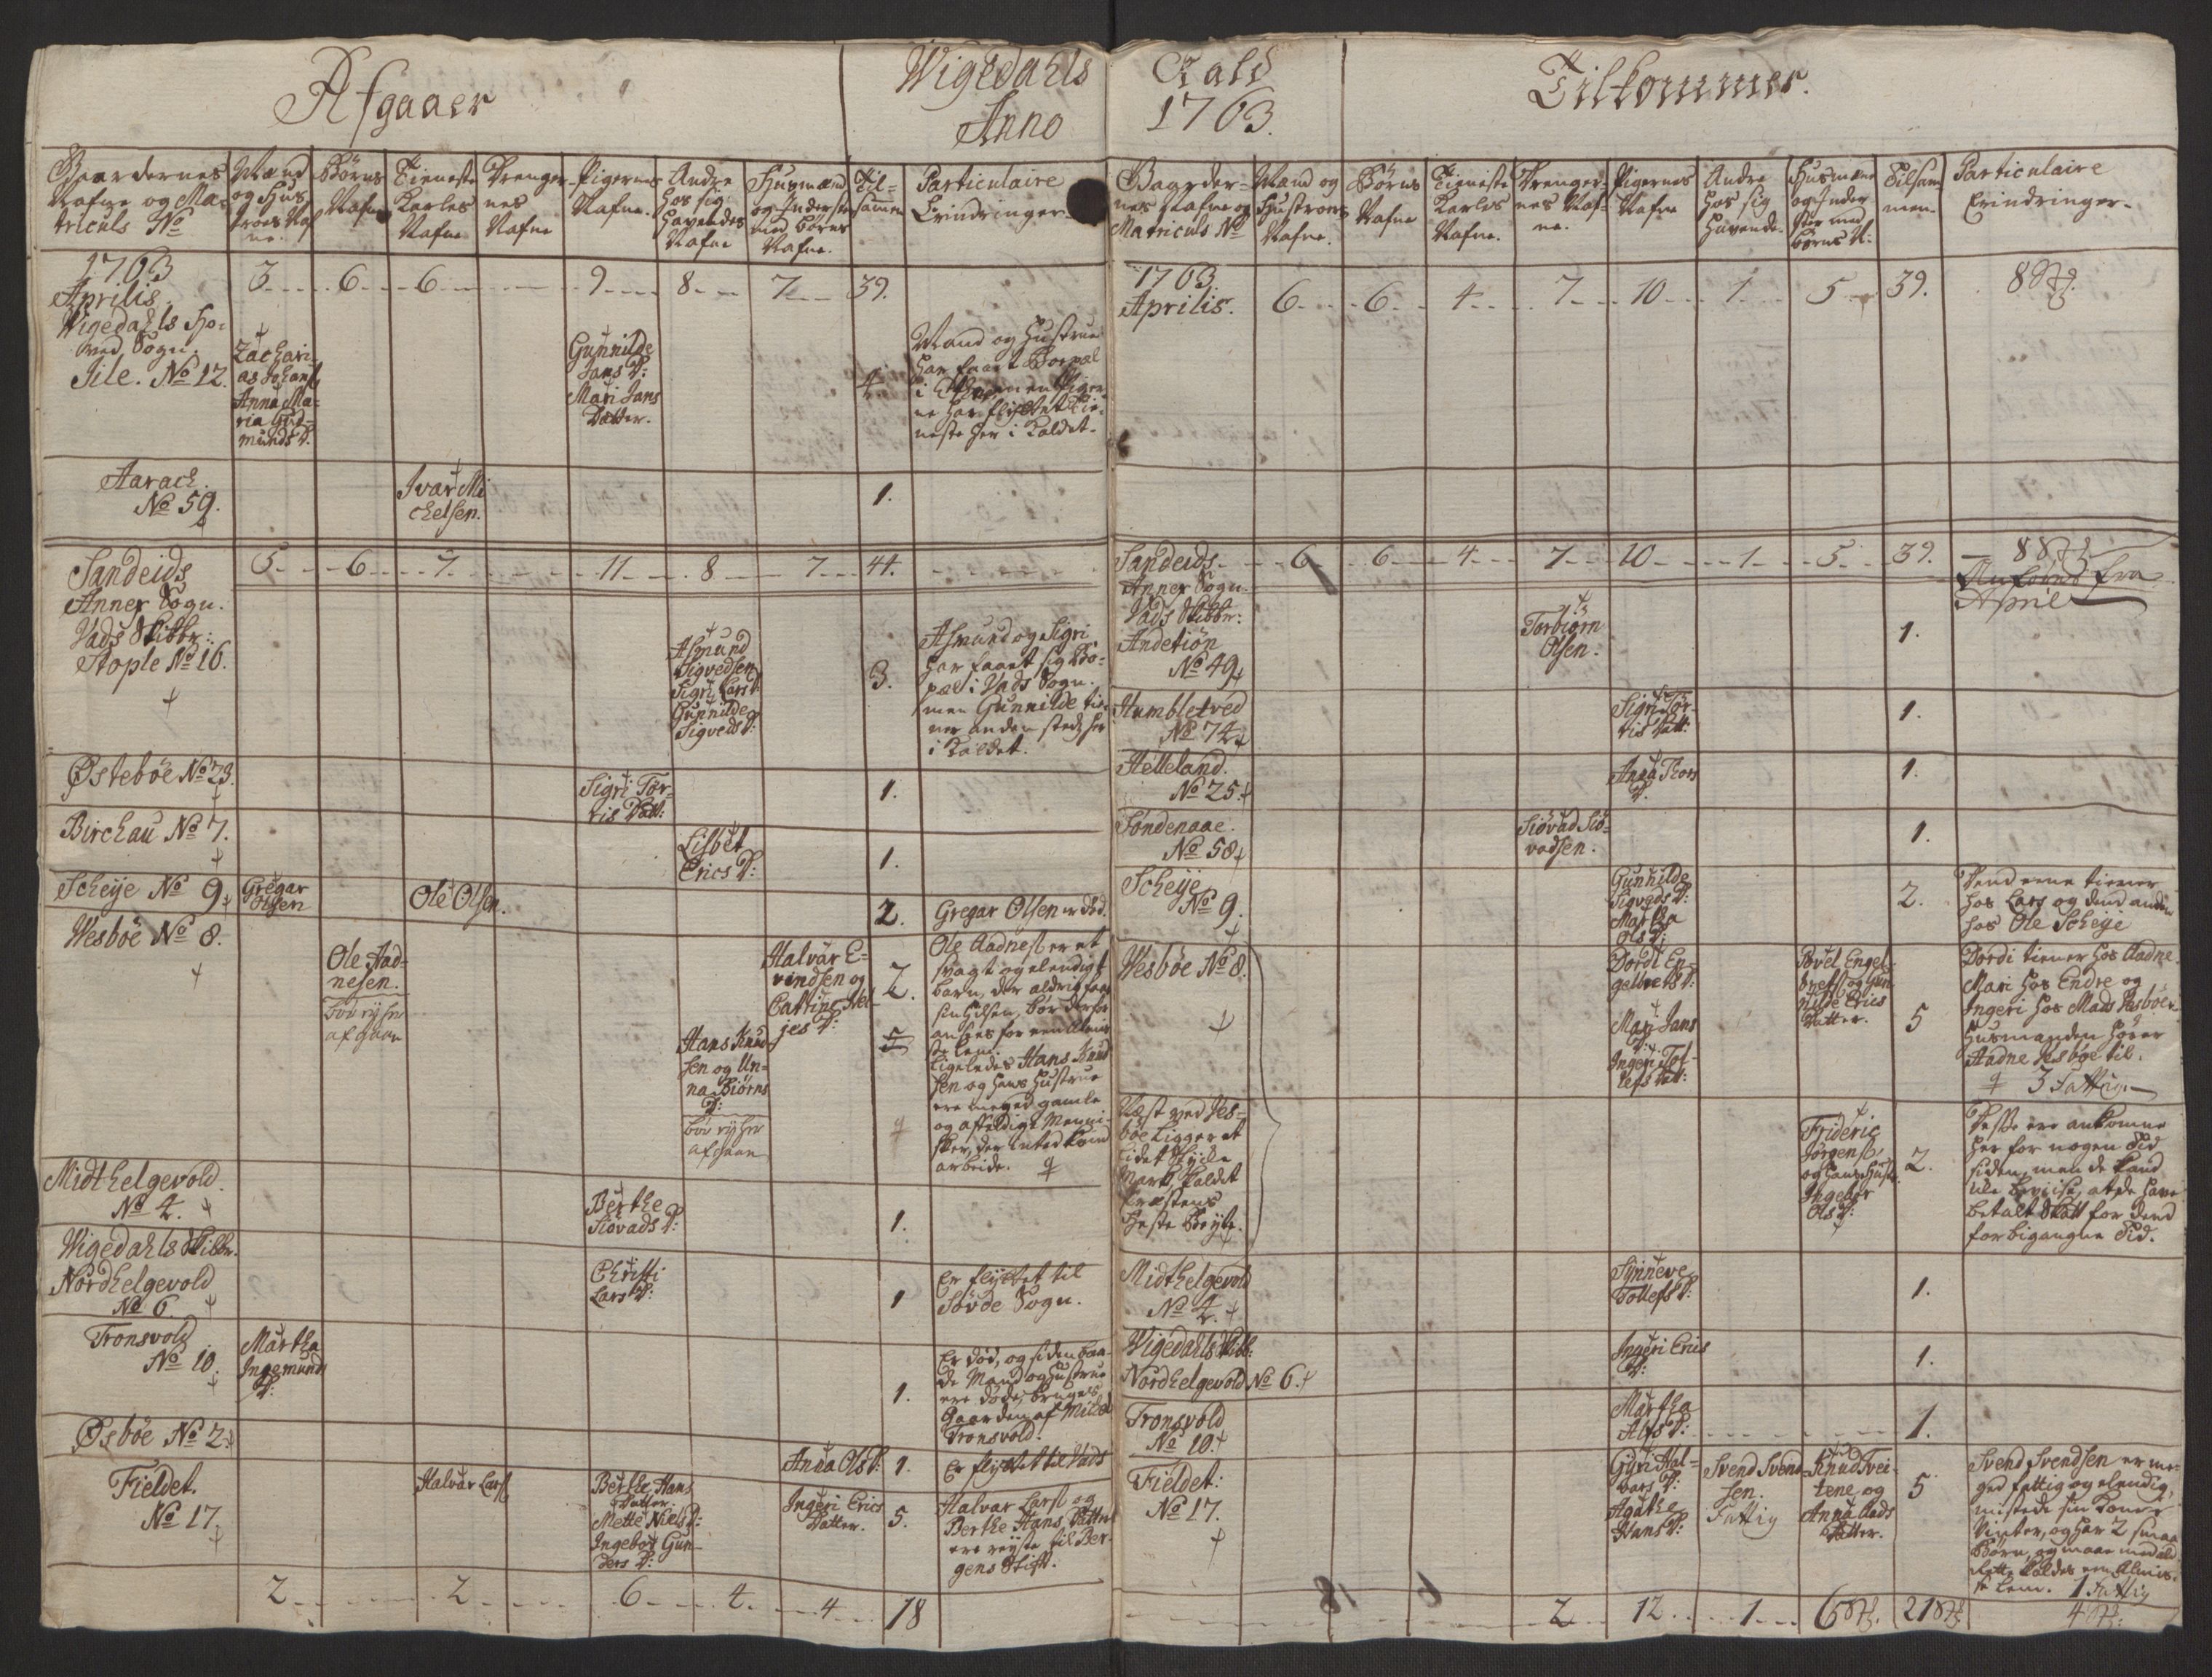 Afgaaer
Wigedahls Kald
Anno 1763.
Tilkommer.
Gaardernes Nafne og Matriculs No
Mænd og Hustroes Nafne.
Børns Nafne
Tieneste Karles Nafne
Drengernes Nafne
Pigernes Nafne.
Andre hos sig havendes Nafne
Husmænd og Inderster med børns Nafne.
Tilsammen
Particulaire Erindringer
1763 Aprilis.
3 6 6 9 8 7 39.
Wigedahls Hoved Sogn.
Jile. No 12.
Zacharias Johans
Anna Maria Gudmunds D:
Gunnilde Jans D:
Mari Jans Datter.
4.
Mand og Hustrue
har faaet Boepæl
i
ne har flyttet Tieneste her i Kaldet.
Aarack.
No 59.
Ivar Michelsen.
1.
5 6 7 11 8 7 44.
Sandeids
Annex Sogn.
Vads Skibbr:
Stople No 16.
Asmund Sigvedsen
Sigri Lars D:
Gunnilde Sigveds D:
3.
Asmund og Sigri
har faaet sig Bopæl i Vads Sogn.
men Gunnilde tiener anden sted her
i Kaldet.
Østebøe No 23.
Sigri Torris Datt:
1.
Birchau No 7.
Lisbet Erics D:
1.
Scheije No 9.
Gregar Olsen
Ole Olsen.
2.
Gregar Olsen er død.
Vesbøe No 8.
Ole Aadnesen.
bør afgaae
Halvar Evindsen og
Cattrine Heljes D:
Hans Knudsen og Unna Biørns D:
bør afgaae
2.
5
Ole Aadnes: er et
svagt og elendigt
barn, der aldrig faar
sin Hilsen, bør derfor
ansees for een Almisse Lem.
Ligeledes Hans Knudsen og hans Hustrue
ere meget gamle
og affeldige Mennisker, der intet kand
arbeide.
Midthelgevold.
No 4.
Berthe Siovads D:
1.
Wigedahls Skibbr.
Nordhelgevold
No 6.
Christi Lars D:
1
Er flyttet til
Søvde Sogn.
Tronsvold
No 10.
Martha Ingemunds D:
1.
Er død, og siden baade Mand og Hustrue
ere døde, bruges
Gaarden af Midt
Tronsvold.
Øsbøe No 2.
Anna Ols D:
1.
Er flyttet til Vads
Fieldet.
No 17.
Halvar Lars:
Berthe Hans Datter.
Mette Niels D:
Ingebor Gunders D:
Ingeri Erics Datter.
5.
Halvar Lars: og
Berthe Hans Datter
ere reyste til Bergens Stift.
2 2 6 4 4 18
Gaardernes Nafne og Matriculs No
Mænd og Hustroes Nafne.
Børns Nafne
Tieneste Karles Nafne.
Drengernes Nafne.
Pigernes Nafne
Andre hos sig havende.
Husmænd og Inderster med børns N:
Tilsammen
Particulaire Erindringer.
1763. Aprilis.
6 6 4 7 10 1 5 39.
Sandeids
6 6 4 7 10 1 5 39.
Anførdt fra
April
Annex Sogn.
Vads Skibbr:
Andetiøn
No 49.
Torbiørn Olsen.
1.
Humbletved
No 74.
Sigri Torris Datt:
1.
Helleland.
No 25.
Anna Thors D:
1.
Søndenaae.
No 58.
Siovad Siovadsen.
1.
Scheije
No 9.
Gunhilde Sigveds D:
Martha Ols D:
2.
Dend eene tiener
hos Lars og dend anden
hos Ole Scheije
Vesbøe No 8.
Dordi Engelbrets D:
Mari Jans D:
Ingeri Tollefs Datt:
Povel Engelbrets: og Gunnilde Erics Datter.
5
Dordi tiener hos Aadne.
Mari hos Endre og
Ingeri hos Mads Vesbøe.
Husmanden hører
Aadne Vesbøe til.
3 Fattig.
Næst ved Vesbøe Ligger et
lidet Stycke
Mark kaldet
Frideric Jørgens:
og hans Hustr:
Ingebor Ols D:
2.
Disse ere ankomne
her for nogen Tid
siden, men de kand
ville beviise, at de have
betalt Skatt for dend
forbigangne Tid.
Midthelgevold
No 4.
Synneve Tollefs D:
1.
Wigedahls Skibb:
Nordhelgevold No 6.
Ingeri Erics D:
1.
Tronsvold
No 10.
Martha Alfs D:
1.
Fieldet:
No 17.
Gyri Halvars D:
Agathe Hans D:
Svend Svendsen.
Fattig
Knud Tveitene og
Anna Aads Datter.
5
Svend Svendsen er meget fattig og elendig,
mistede sin Kone i
Vinter, og har 2 smaa
Børn, og maae med all
Rette kaldes een Almisse Lem. 1 Fattig
2 12 1 6 21